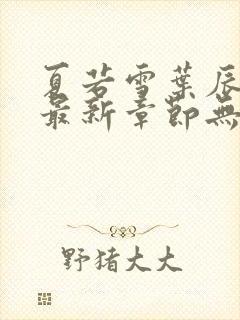 夏若雪葉辰
最新章節無
野猪大大